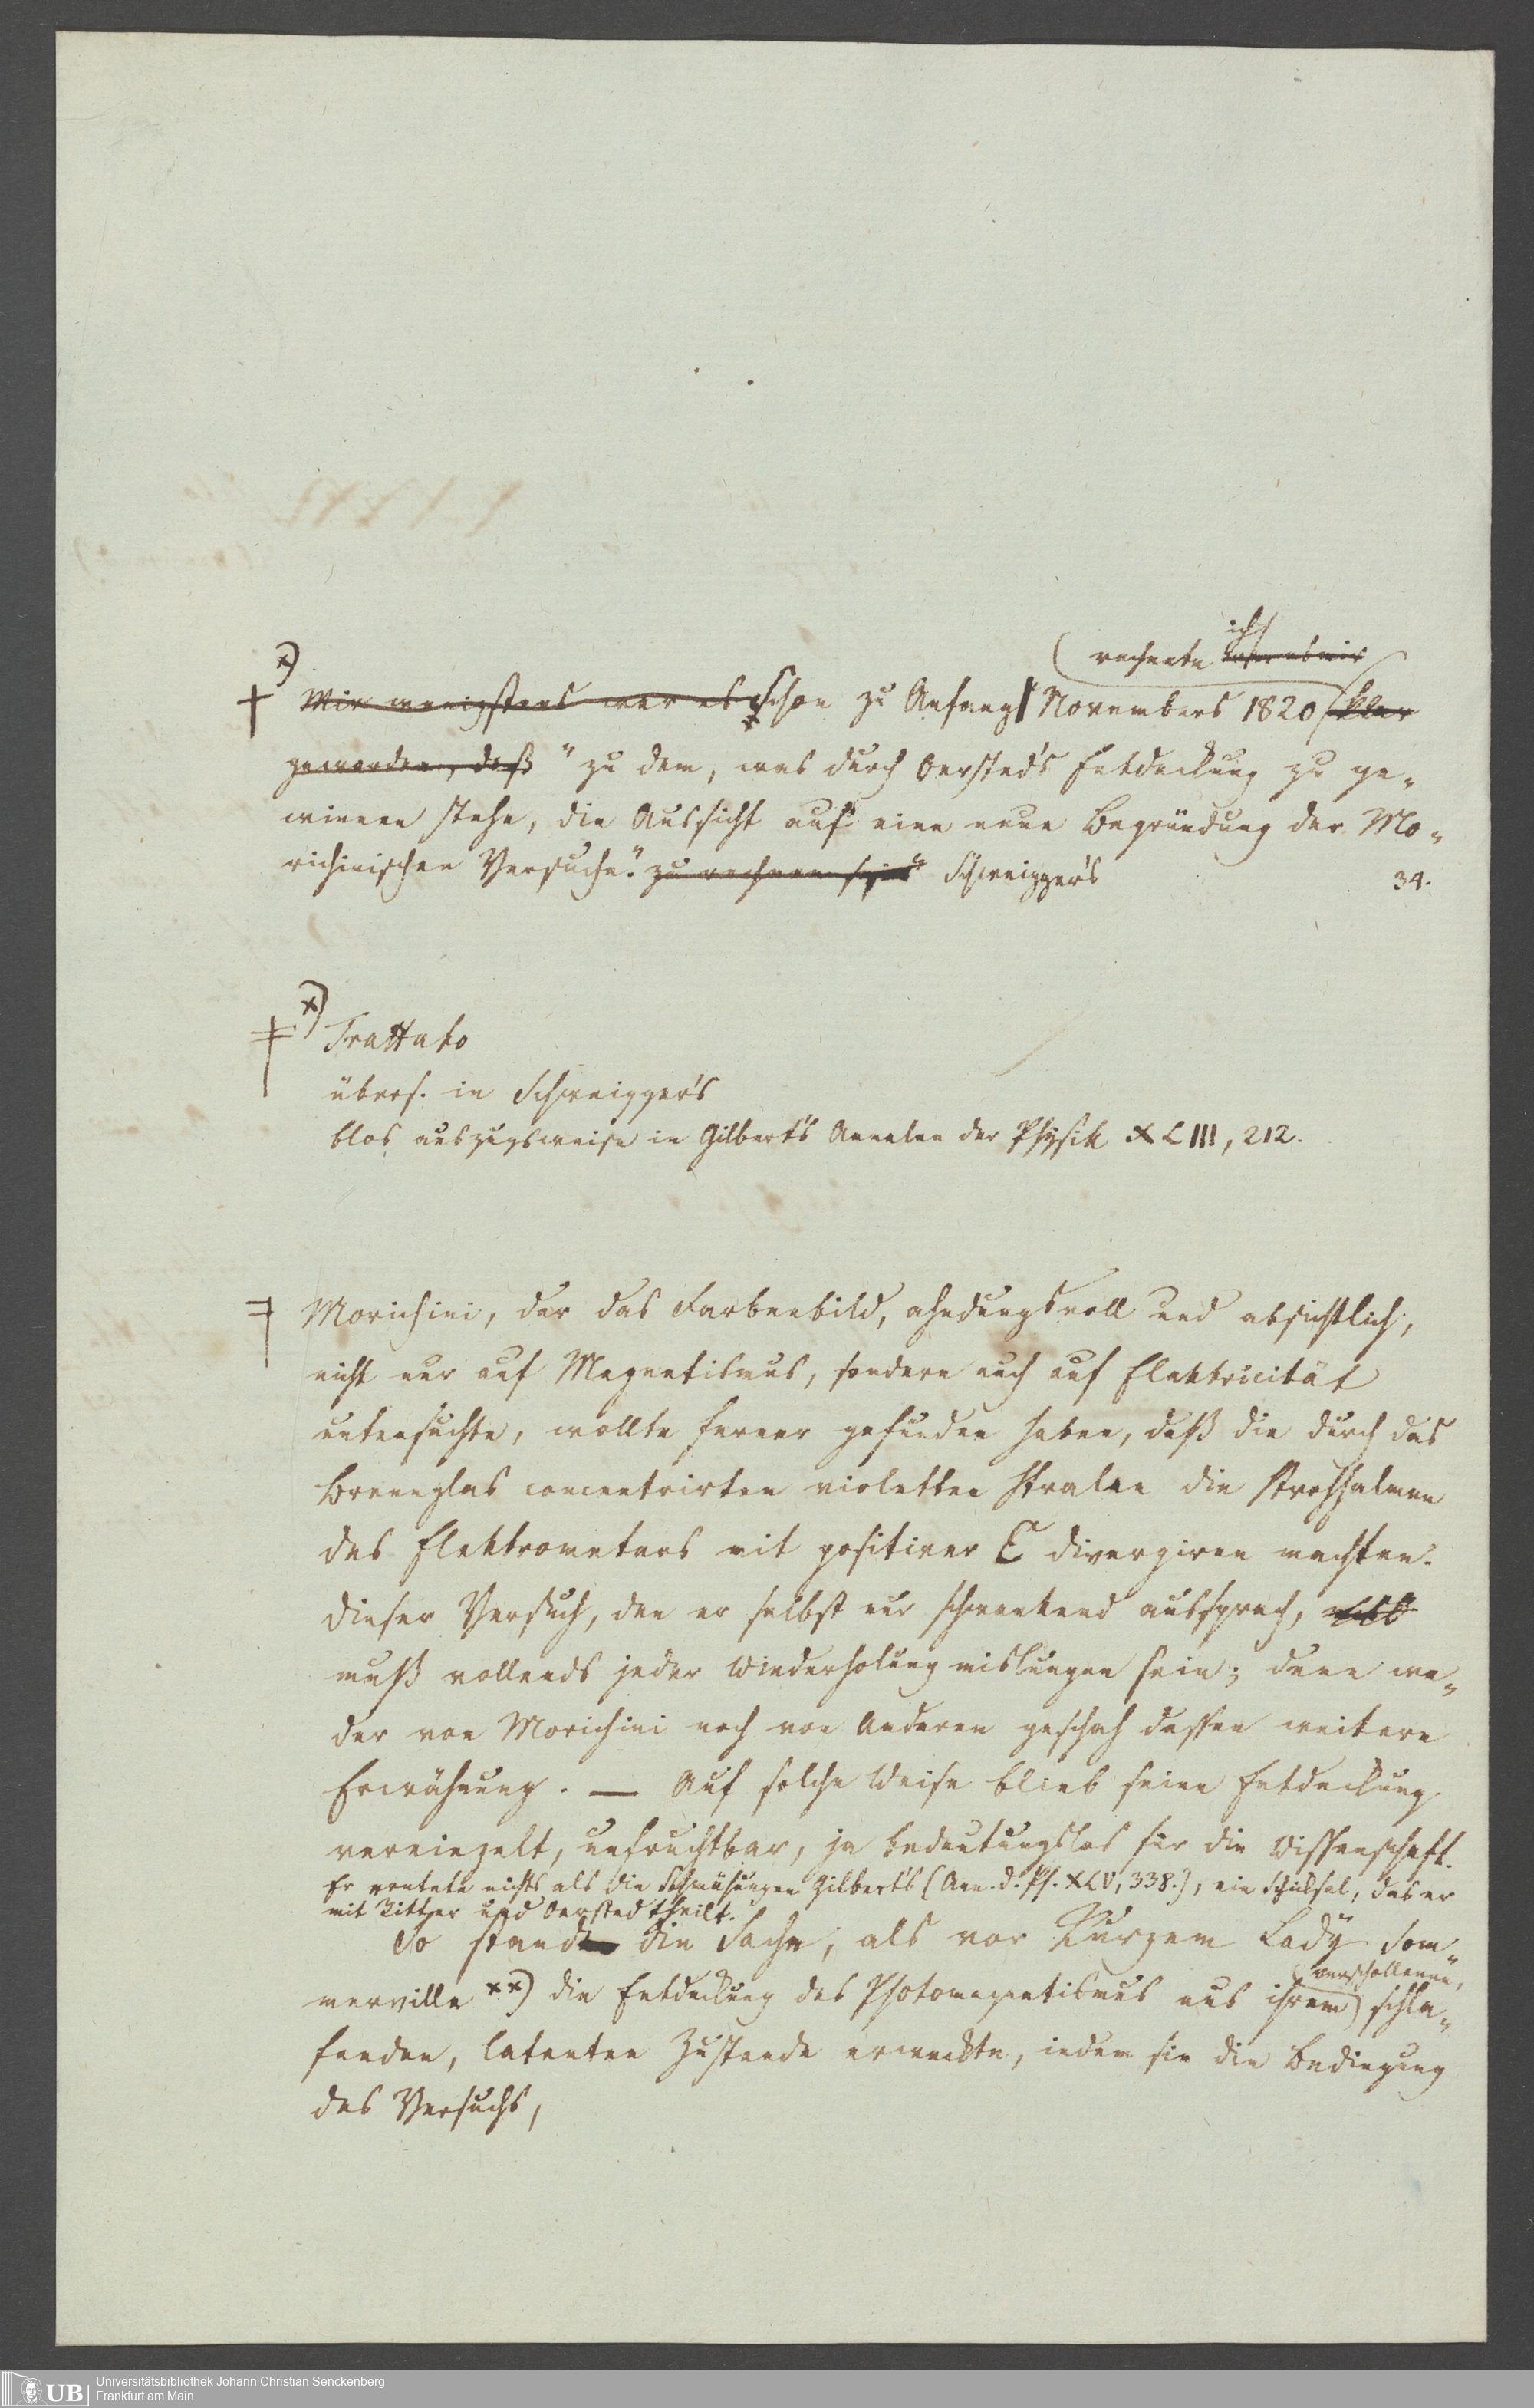 ich
rechnete
†*) Mir wenigstens war es Schon zu Anfang Novembers 1820 klar
geworden, daß "zu dem, was durch Oersted's Entdeckung zu ge-
winnen stehe, die Aussicht auf eine neue Begründung der Mo-
richinischen Versuche." zu rechnen sei" Schweigger's 34.
*) Trattato
übers. in Schweigger's
blos auszugsweise in Gilbert's Annalen der Physik XLIII, 212.
Morichini, der das Farbenbild, ahndungsvoll und absichtlich,
nicht nur auf Magnetismus, sondern auch auf Elektricität
untersuchte, wollte ferner gefunden haben, daß die durch das
Brennglas concentrirten violetten Stralen die Strohhalmen
des Elektrometers mit positiver E divergiren machten.
Dieser Versuch, den er selbst nur schwankend aussprach,
muß vollends jeder Wiederholung mislungen sein; denn we-
der von Morichini noch von Anderen geschah dessen weitere
Erwähnung. — Auf solche Weise blieb seine Entdeckung
vereinzelt, unfruchtbar, ja bedeutungslos für die Wissenschaft.
Er erntete nichts als die Schmähungen Gilbert's (Ann. d. Ph. XLV, 338.), ein Schicksal, das er
mit Ritter und Oersted theilt.
So stand die Sache, als vor Kurzem Lady Som-
verschollenen,
merville **) die Entdeckung des Photomagnetismus aus ihrem schla-
fenden, latenten Zustande erweckte, indem sie die Bedingung
des Versuchs,
UB Universitätsbibliothek Johann Christian Senckenberg
Frankfurt am Main